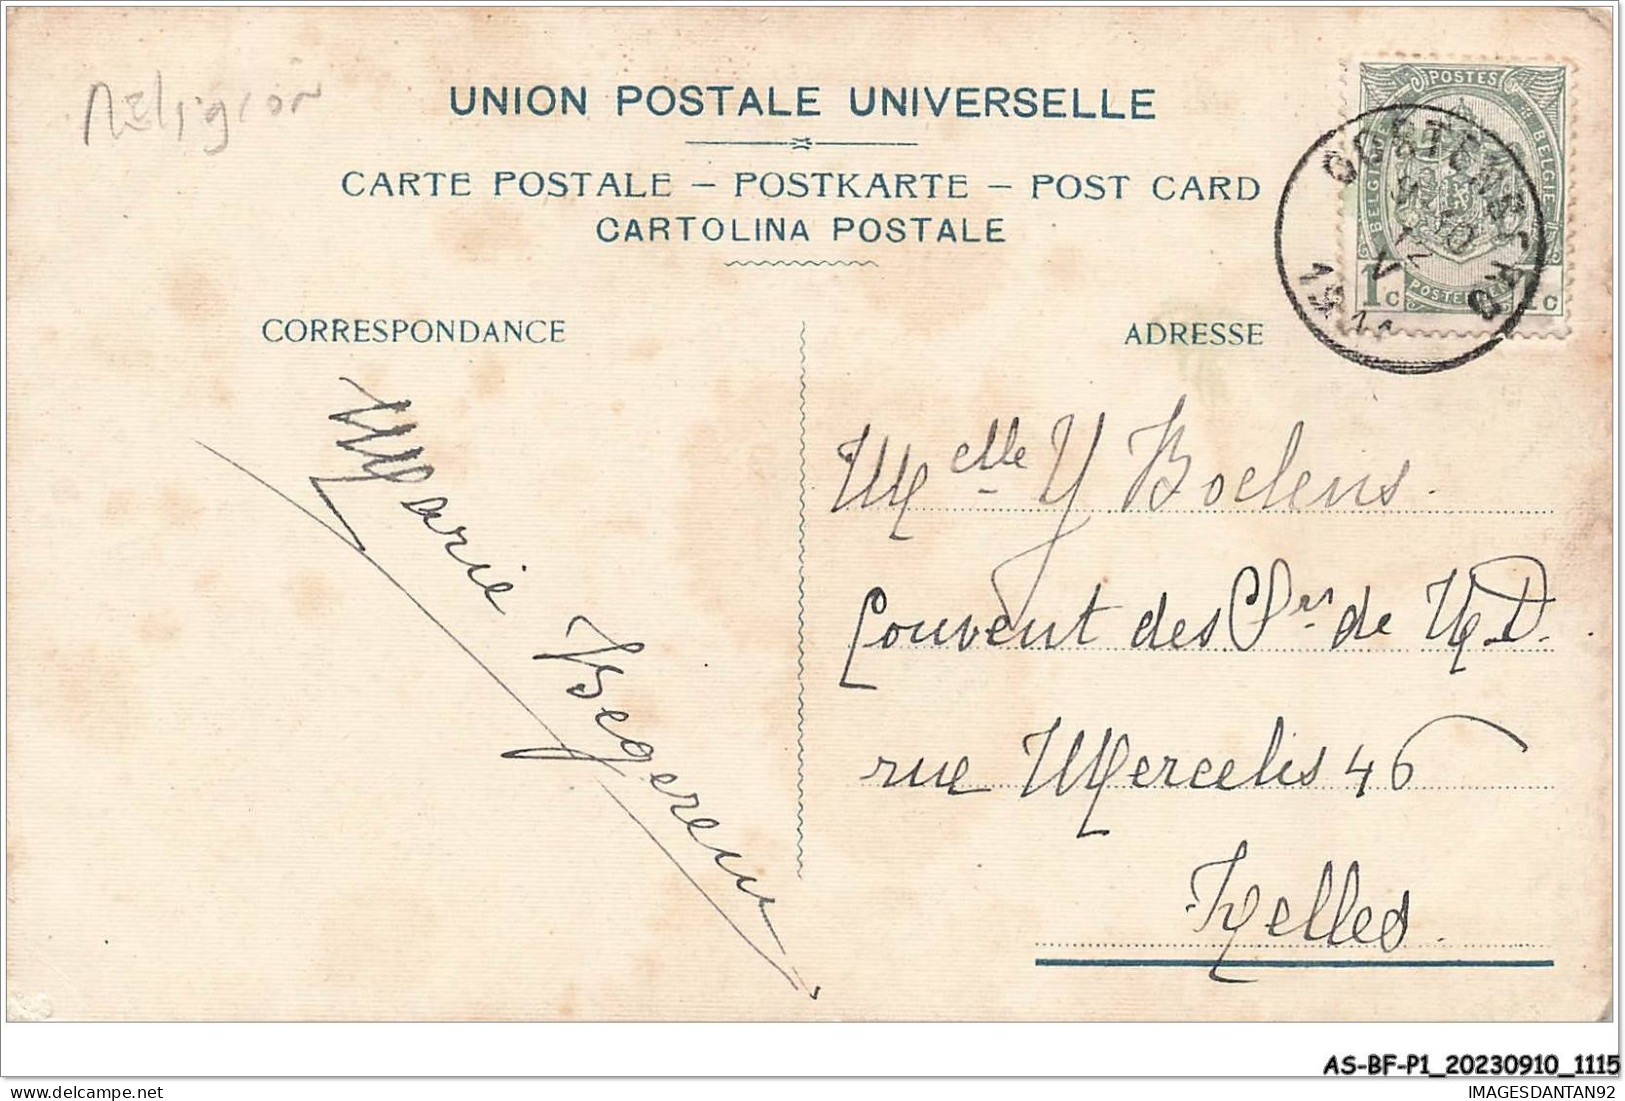 Religion
UNION POSTALE UNIVERSELLE
CARTE POSTALE – POSTKARTE – POST CARD
CARTOLINA POSTALE
POSTES
BELGIQUE
BELGIE
1c
1c
V
12
CORRESPONDANCE
ADRESSE
Melle Y Boelens.
Couvent des Srs de N D.
rue Mercelis 46
Ixelles.
Marie
AS-BF-P1_20230910_1115
IMAGESDANTAN92